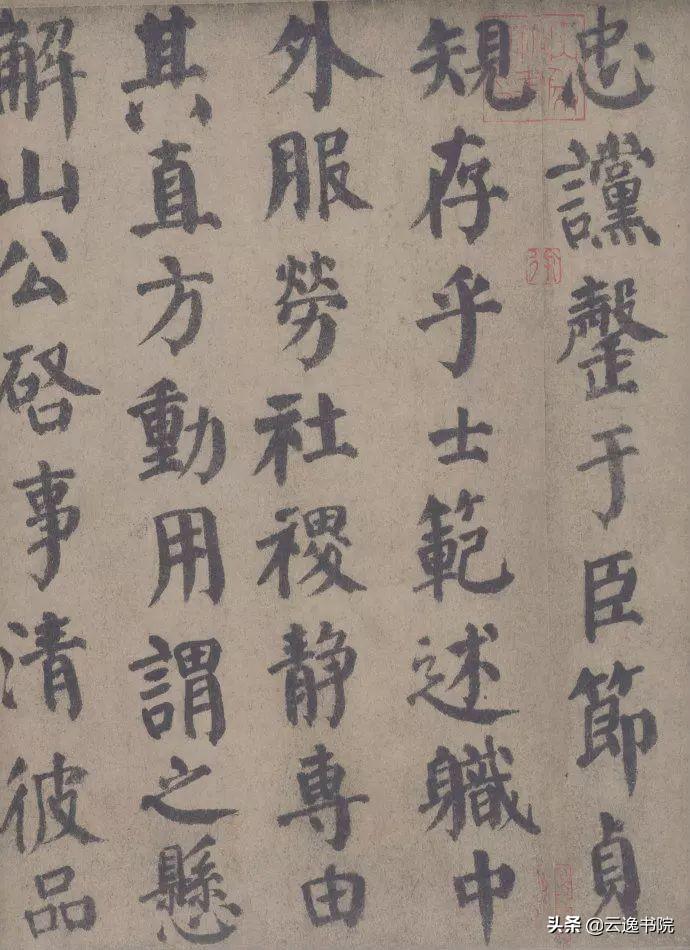 忠讜罄于臣節貞
規存乎士範述職中
外服勞社稷静專由
其直方動用謂之懸
解山公啓事清彼品
头条 @云逸书院